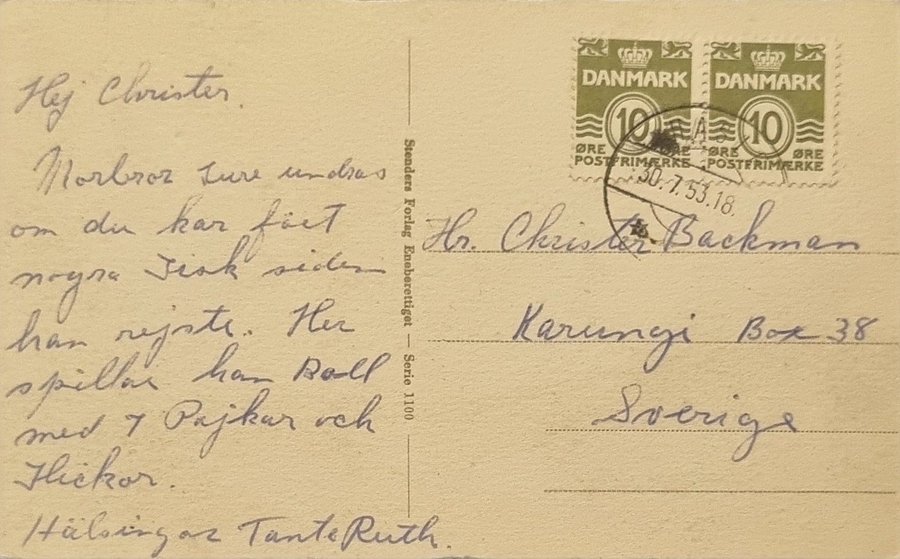 Hej Christer.
Morbror Ture undras
om du har fået
nogra Fisk siden
han rejste. Her
spillar han Boll
med 7 Pojkar och
Flickor.
Hälsingar Tante Ruth.
Stenders Forlag Eneberettiget — Serie 1100
DANMARK
10
ØRE
ØRE
POSTFRIMÆRKE
DANMARK
10
ØRE
ØRE
POSTFRIMÆRKE
30.7.53.18.
Hr. Christer Backman
Karungi Box 38
Sverige